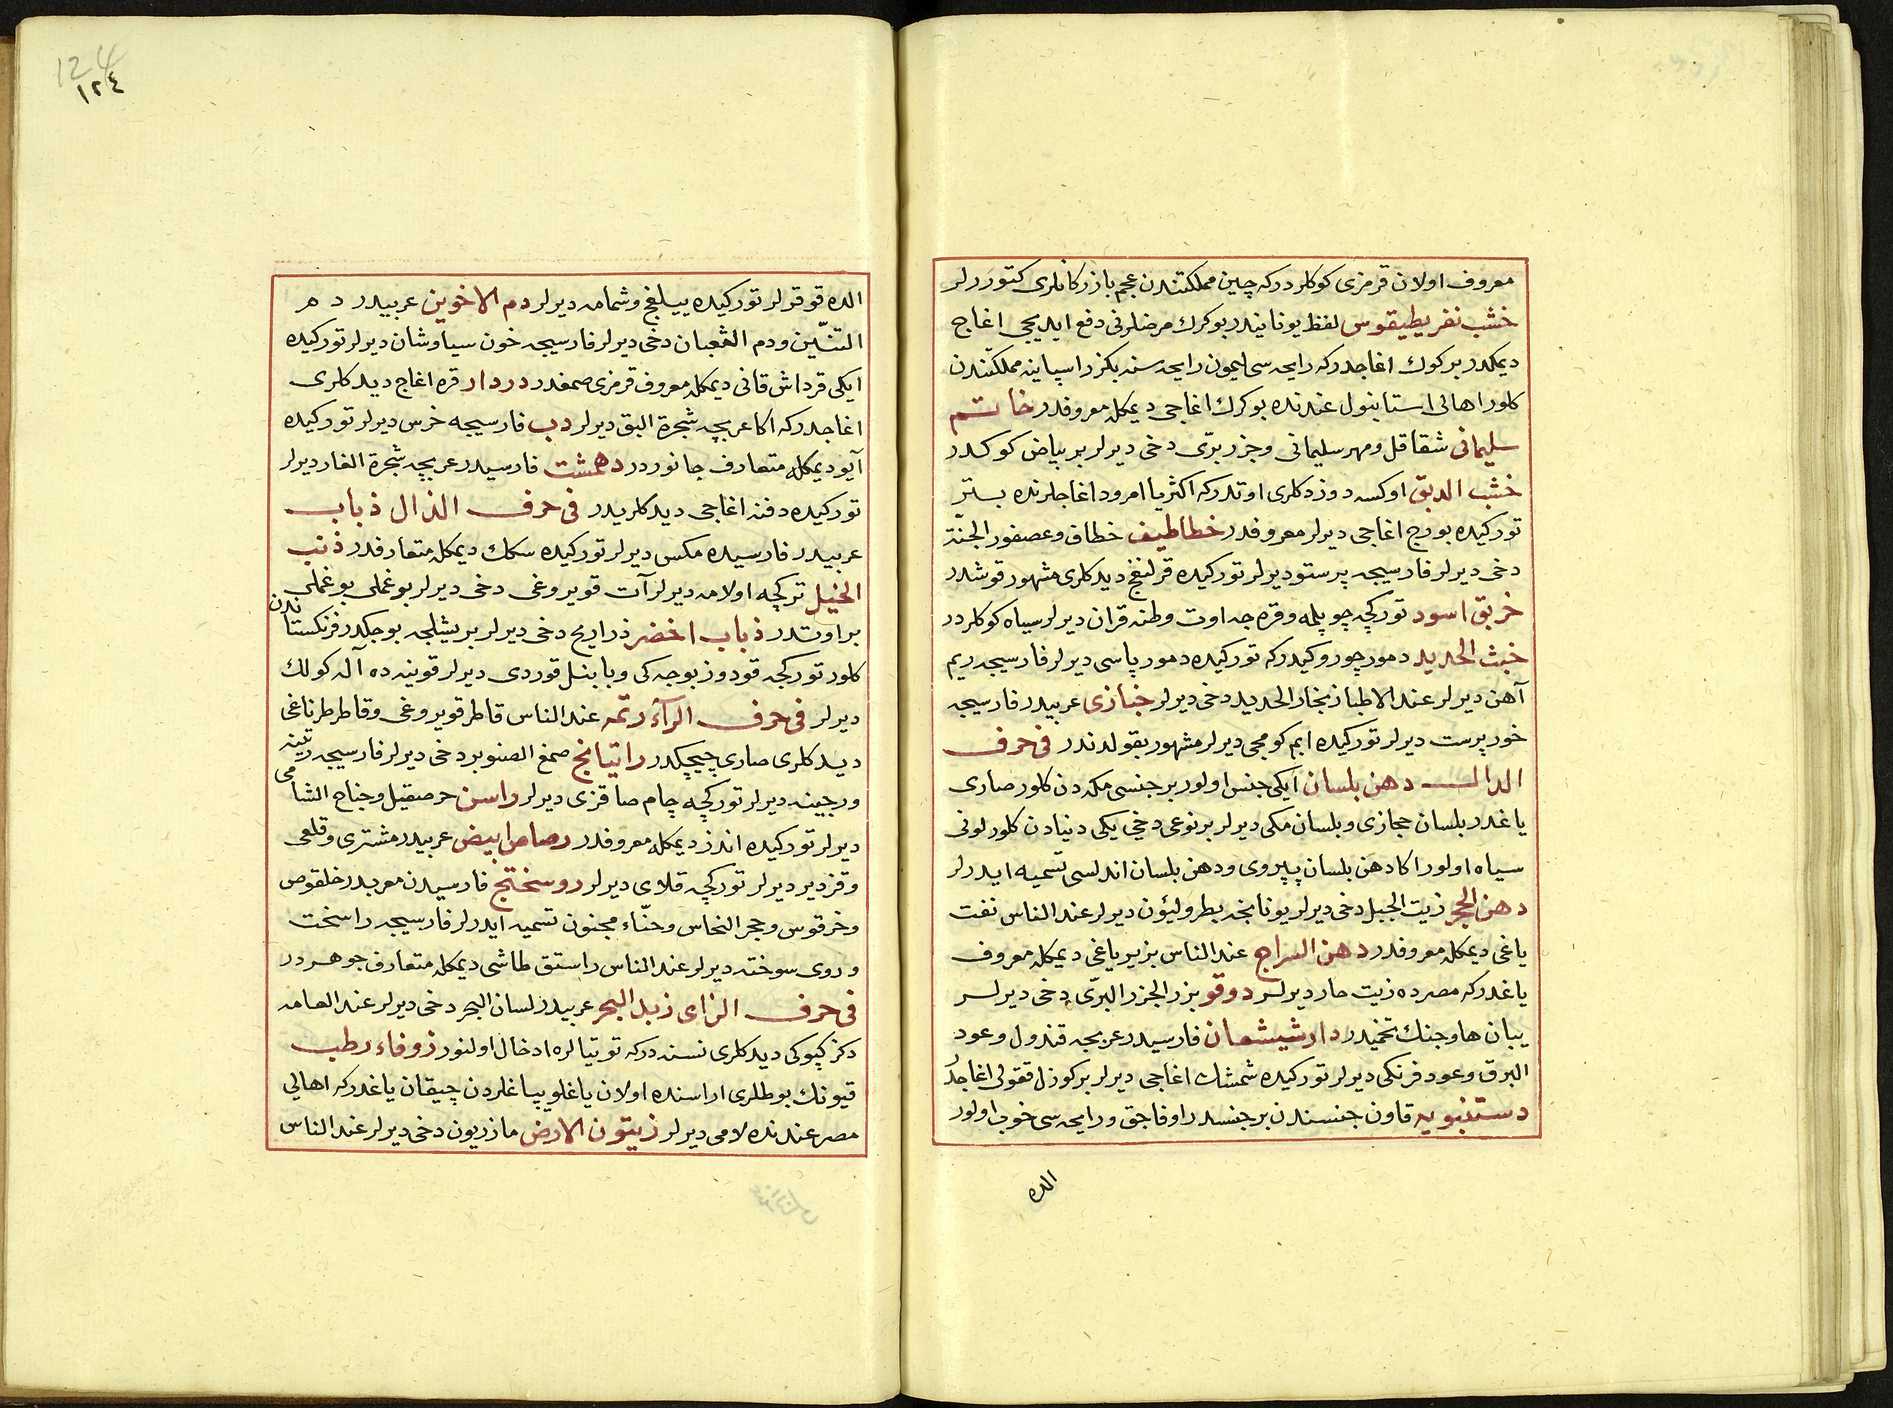 معروف اولان قرمزی کوکلردرکه چین مملکتندن عجم بازرکانلری کتوررلر
خشب نفریطیقوس لفظ یونانیدر بوکرك مرضلرنی دفع ایدیجی اغاج
دیمکدر برکوك اغاجدرکه رایحه سی لیمون رایحه سنه بکزر اسپانیه مملکتندن
کلور اهالی استانبول عندنده بوکرك اغاجی دیمکله معروفدر خاتم
سلیمانی شقاقل ومهر سلیمانی وجزر برّی دخی دیرلر بر بیاض کوکدر
خشب الدبق اوکسه دوزدکلری اوتدرکه اکثریا امرود اغاجلرنده بتر
تورکیده بورج اغاجی دیرلر معروفدر خطاطیف خطاف وعصفور الجنّة
دخی دیرلر فارسیجه پرستو دیرلر تورکیده قرلنغج دیدکلری مشهور قوشدر
خربق اسود تورکچه چوپلمه وقره جه اوت وطنه قران دیرلر سیاه کوکلردر
خبث الحدید دمور چوروکیدرکه تورکیده دمور پاسی دیرلر فارسیجه ریم
آهن دیرلر عند الاطبا زنجار الحدید دخی دیرلر خبازی عربیدر فارسیجه
خورپرست دیرلر تورکیده ابم کومجی دیرلر مشهور بقولدندر فی حرف
الدال دهن بلسان ایکی جنس اولور بر جنسی مکه دن کلور صاری
یاغدر بلسان حجازی وبلسان مکی دیرلر بر نوعی دخی یکی دنیادن کلور لونی
سیاه اولور اکا دهن بلسان پیروی ودهن بلسان اندلسی تسمیه ایدرلر
دهن الحجر زیت الجبل دخی دیرلر یونانجه بطرولیؤن دیرلر عند الناس نفت
یاغی دیمکله معروفدر دهن السراج عند الناس بزیر یاغی دیمکله معروف
یاغدرکه مصرده زیت حار دیرلر دوقو بزر الجزر البرّی دخی دیرلر
یبان هاوجنك تخمیدر دارشیشعان فارسیدر عربجه قندول وعود
البرق وعود فرنکی دیرلر تورکیده شمشك اغاجی دیرلر بر کوزل قوقولی اغاجدر
دستنبویه قاون جنسندن بر جنسدر اوفاجق ورایحه سی خوب اولور
الده
124
١٢٤
الده قوقرلر تورکیده بیلغج وشمامه دیرلر دم الاخوین عربیدر دم
التنّین ودم الثعبان دخی دیرلر فارسیجه خون سیاوشان دیرلر تورکیده
ایکی قرداش قانی دیمکله معروف قرمزی صمغدر دردار قره اغاج دیدکلری
اغاجدرکه اکا عربجه شجرة البق دیرلر دب فارسیجه خرس دیرلر تورکیده
آیو دیمکله متعارف جانوردر دهمشت فارسیدر عربجه شجرة الغار دیرلر
تورکیده دفنه اغاجی دیدکلریدر فی حرف الذال ذباب
عربیدر فارسیده مکس دیرلر تورکیده سکك دیمکله متعارفدر ذنب
الخیل ترکچه اولامه دیرلر آت قویروغی دخی دیرلر بوغملی بوغملی
بر اوتدر ذباب اخضر ذراریح دخی دیرلر بر یشیلجه بوجکدر فرنکستاندن
کلور تورکجه قودوز بوجه کی وبابنل قوردی دیرلر قوینه ده آله کولك
دیرلر فی حرف الرآء رتمه عند الناس قاطر قویروغی وقاطر طرناغی
دیدکلری صاری چیچکدر راتیانج صمغ الصنوبر دخی دیرلر فارسیجه رتینه
ورجینه دیرلر تورکچه چام صاقزی دیرلر راسن حرصقیل وجناح الشامی
دیرلر تورکیده اندز دیمکله معروفدر رصاص ابیض عربیدر مشتری وقلعی
وقزدیر دیرلر تورکچه قلای دیرلر روسختج فارسیدن معربدر خلقوص
وخرقوس وحجر النحاس وحنّاء مجنون تسمیه ایدرلر فارسیجه راسخت
وروی سوخته دیرلر عند الناس راستق طاشی دیمکله متعارف جوهردر
فی حرف الزای زبد البحر عربیدر لسان البحر دخی دیرلر عند العامه
دکز کپوکی دیدکلری نسنه درکه توتیالره ادخال اولنور زوفاء رطب
قیونك بوطلری اراسنده اولان یاغلو یپاغلردن چیقان یاغدرکه اهالی
مصر عندنده لامی دیرلر زیتون الارض مازریون دخی دیرلر عند الناس